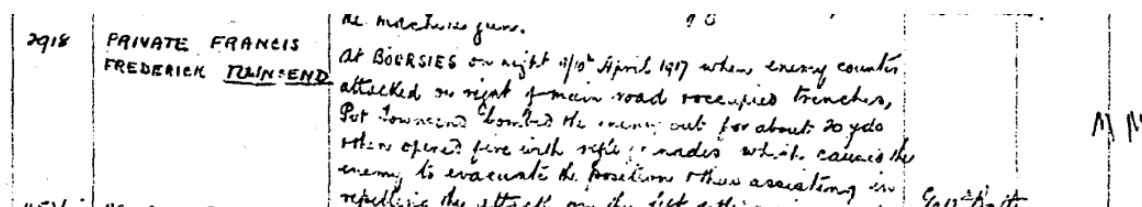 the machine gun.
2918 PRIVATE FRANCIS
FREDERICK TOWNSEND
At BOURSIES on night 9/10th April 1917 when enemy counter
attacked on right of main road & occupied trenches,
Pvt Townsend bombed the enemy out for about 20 yds
& then opened fire with rifle grenades which caused the
enemy to evacuate the position & thus assisting in
repelling the attack on the
M